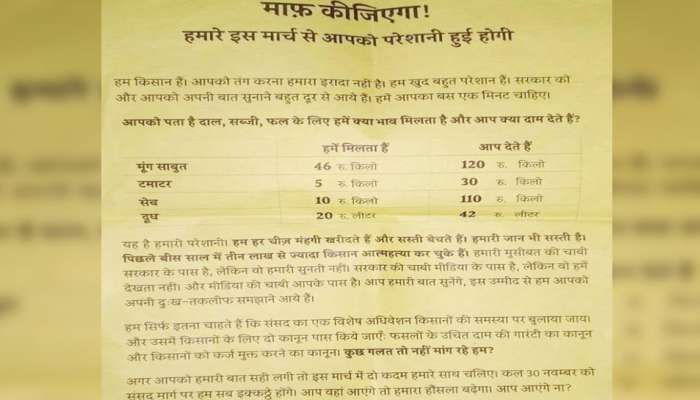 माफ़ कीजिएगा!
हमारे इस मार्च से आपको परेशानी हुई होगी
हम किसान हैं। आपको तंग करना हमारा इरादा नहीं है। हम खुद बहुत परेशान हैं। सरकार को
और आपको अपनी बात सुनाने बहुत दूर से आये हैं। हमें आपका बस एक मिनट चाहिए।
आपको पता है दाल, सब्जी, फल के लिए हमें क्या भाव मिलता है और आप क्या दाम देते हैं?
हमें मिलता हैं आप देते हैं
मूंग साबुत 46 रु. किलो 120 रु. किलो
टमाटर 5 रु. किलो 30 रु. किलो
सेब 10 रु. किलो 110 रु. किलो
दूध 20 रु. लीटर 42 रु. लीटर
यह है हमारी परेशानी। हम हर चीज़ मंहगी खरीदते हैं और सस्ती बेचते हैं। हमारी जान भी सस्ती है।
पिछले बीस साल में तीन लाख से ज्यादा किसान आत्महत्या कर चुके हैं। हमारी मुसीबत की चाबी
सरकार के पास है, लेकिन वो हमारी सुनती नहीं। सरकार की चाबी मीडिया के पास है, लेकिन वो हमें
देखता नहीं। और मीडिया की चाबी आपके पास है। आप हमारी बात सुनेंगे, इस उम्मीद से हम आपको
अपनी दुःख-तकलीफ समझाने आये हैं।
हम सिर्फ इतना चाहते हैं कि संसद का एक विशेष अधिवेशन किसानों की समस्या पर बुलाया जाय।
और उसमें किसानों के लिए दो कानून पास किये जाएँ: फसलों के उचित दाम की गारंटी का कानून
और किसानों को कर्ज मुक्त करने का कानून। कुछ गलत तो नहीं मांग रहे हम?
अगर आपको हमारी बात सही लगी तो इस मार्च में दो कदम हमारे साथ चलिए। कल 30 नवम्बर को
संसद मार्ग पर हम सब इक्कठ्ठे होंगे। आप वहां आएंगे तो हमारा हौंसला बढ़ेगा। आप आएंगे ना?